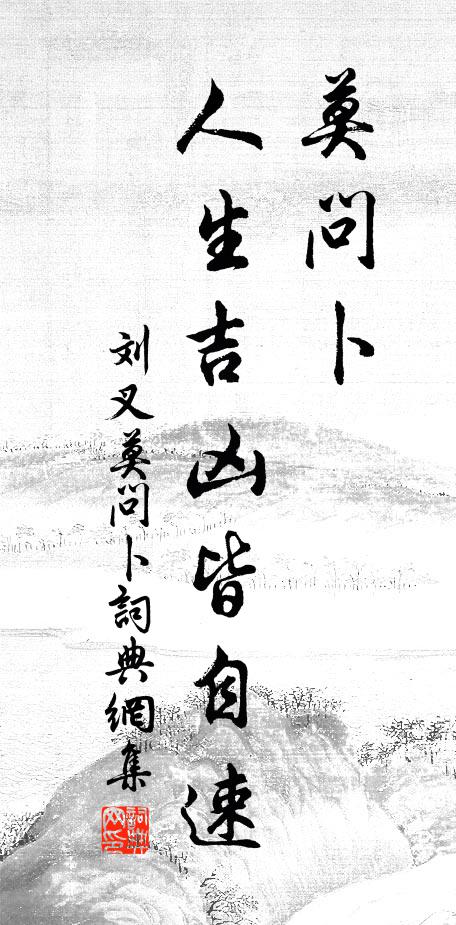 莫問卜
人生吉凶皆自速
刘叉莫問卜詞典網集